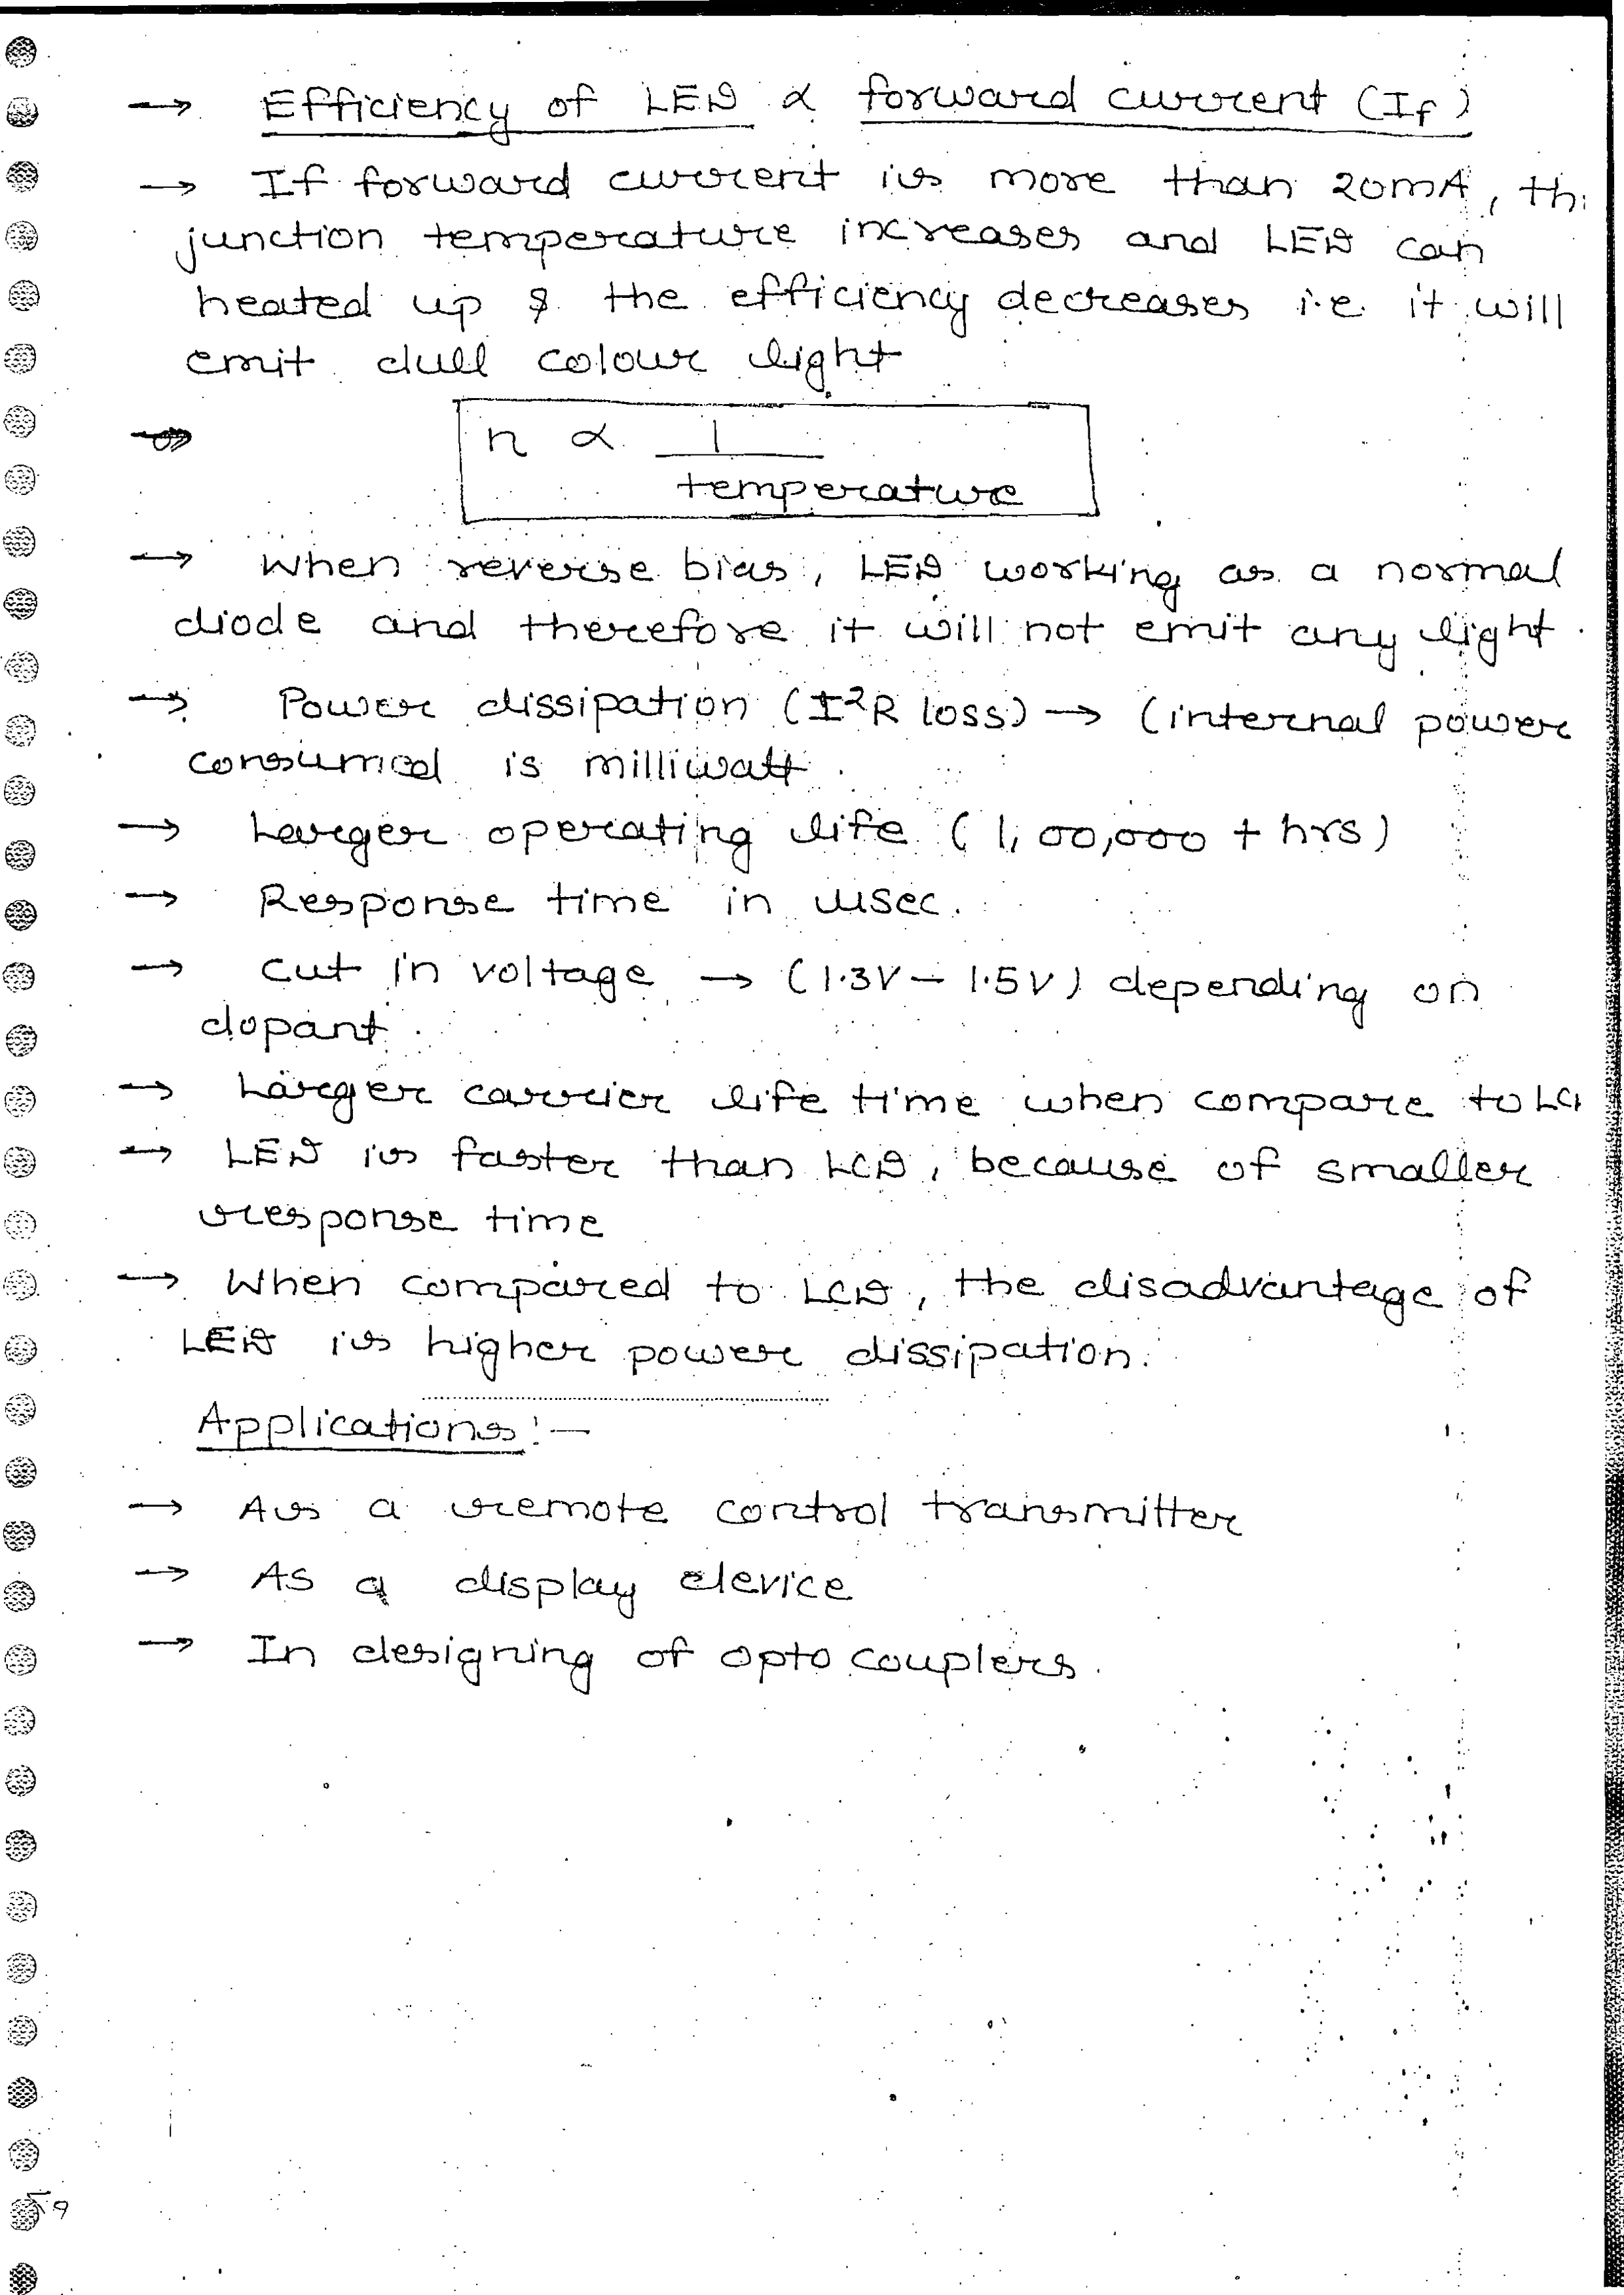 → Efficiency of LED ∝ forward current (If)
→ If forward current is more than 20mA, th
junction temperature increases and LED can
heated up & the efficiency decreases i.e. it will
emit dull colour light
→ n ∝ 1
temperature
→ when reverse bias, LED working as a normal
diode and therefore it will not emit any light.
→ Power dissipation (I²R loss) → (internal power
consumed is milliwatt.
→ Larger operating life (1,00,000 + hrs)
→ Response time in μsec.
→ cut in voltage → (1.3V – 1.5V) depending on
dopant.
→ Larger carrier life time when compare to LC
→ LED is faster than LCD, because of smaller
response time
→ When compared to LCD, the disadvantage of
LED is higher power dissipation.
Applications:–
→ As a remote control transmitter
→ As a display device
→ In designing of opto couplers.
59